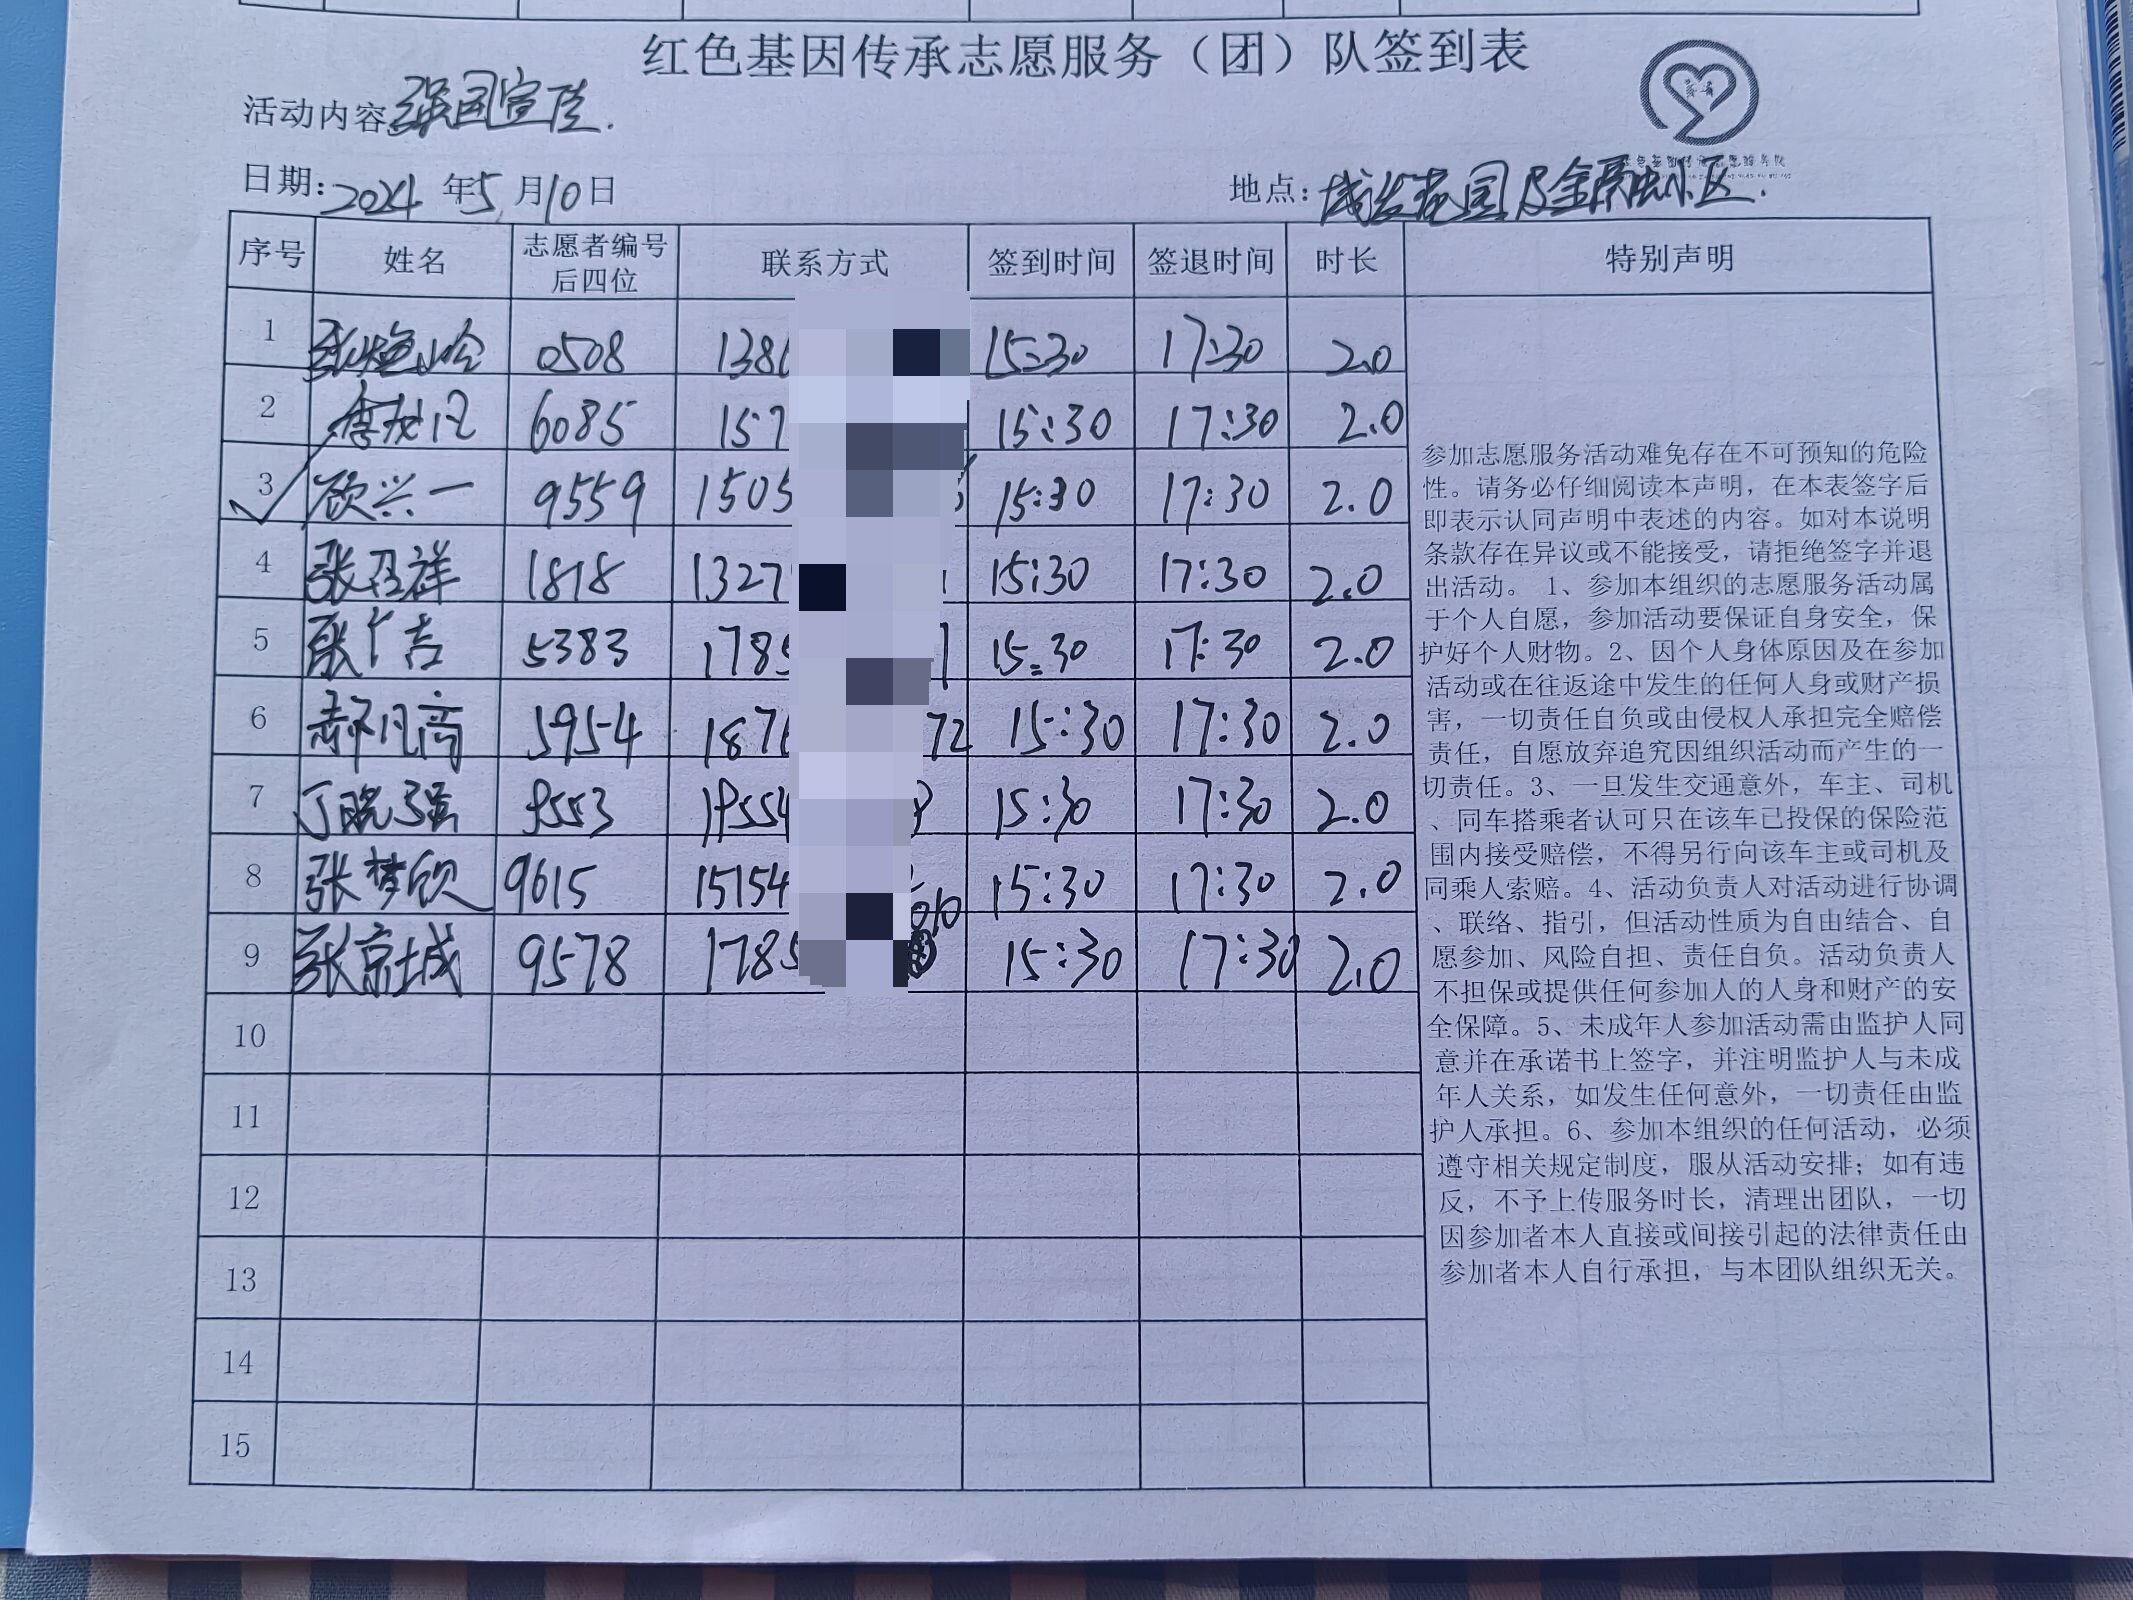 红色基因传承志愿服务（团）队签到表
活动内容 强国宣传.
日期: 2024 年 5 月 10 日
地点: 城发花园及金 小区.
序号 姓名 志愿者编号后四位 联系方式 签到时间 签退时间 时长 特别声明
1 0508 138 15:30 17:30 2.0
2 6085 157 15:30 17:30 2.0
3 欣兴一 9559 1505 15:30 17:30 2.0
4 张召祥 1818 1327 15:30 17:30 2.0
5 张广吉 5383 1785 15:30 17:30 2.0
6 郝凡高 5954 1876 72 15:30 17:30 2.0
7 丁晓强 9553 19554 15:30 17:30 2.0
8 张梦欣 9615 15154 15:30 17:30 2.0
9 张京城 9578 1785 15:30 17:30 2.0
10
11
12
13
14
15
参加志愿服务活动难免存在不可预知的危险
性。请务必仔细阅读本声明，在本表签字后
即表示认同声明中表述的内容。如对本说明
条款存在异议或不能接受，请拒绝签字并退
出活动。 1、参加本组织的志愿服务活动属
于个人自愿，参加活动要保证自身安全，保
护好个人财物。2、因个人身体原因及在参加
活动或在往返途中发生的任何人身或财产损
害，一切责任自负或由侵权人承担完全赔偿
责任，自愿放弃追究因组织活动而产生的一
切责任。3、一旦发生交通意外，车主、司机
、同车搭乘者认可只在该车已投保的保险范
围内接受赔偿，不得另行向该车主或司机及
同乘人索赔。4、活动负责人对活动进行协调
、联络、指引，但活动性质为自由结合、自
愿参加、风险自担、责任自负。活动负责人
不担保或提供任何参加人的人身和财产的安
全保障。5、未成年人参加活动需由监护人同
意并在承诺书上签字，并注明监护人与未成
年人关系，如发生任何意外，一切责任由监
护人承担。6、参加本组织的任何活动，必须
遵守相关规定制度，服从活动安排；如有违
反，不予上传服务时长，清理出团队，一切
因参加者本人直接或间接引起的法律责任由
参加者本人自行承担，与本团队组织无关。